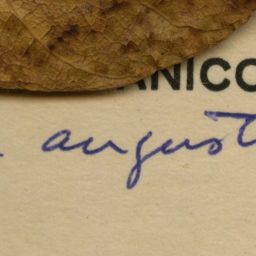 ANICO
august